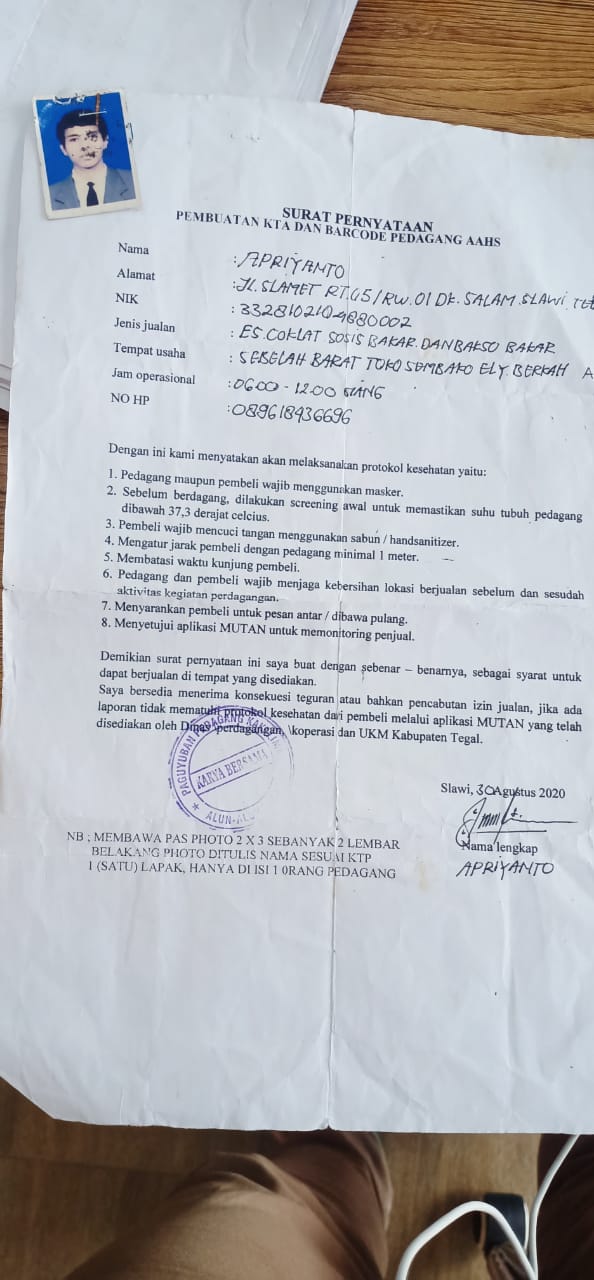 SURAT PERNYATAAN
PEMBUATAN KTA DAN BARCODE PEDAGANG AAHS
Nama : APRIYANTO
Alamat : JL. SLAMET RT.05/RW.01 DK. SALAM. SLAWI.
NIK : 3328102104880002
Jenis jualan : ES. COKLAT SOSIS BAKAR. DAN BAKSO BAKAR
Tempat usaha : SEBELAH BARAT TOKO SEMBAKO ELY. BERKAH A
Jam operasional : 06.00 - 12.00 SIANG
NO HP : 089618436696
Dengan ini kami menyatakan akan melaksanakan protokol kesehatan yaitu:
1. Pedagang maupun pembeli wajib menggunakan masker.
2. Sebelum berdagang, dilakukan screening awal untuk memastikan suhu tubuh pedagang
dibawah 37,3 derajat celcius.
3. Pembeli wajib mencuci tangan menggunakan sabun / handsanitizer.
4. Mengatur jarak pembeli dengan pedagang minimal 1 meter.
5. Membatasi waktu kunjung pembeli.
6. Pedagang dan pembeli wajib menjaga kebersihan lokasi berjualan sebelum dan sesudah
aktivitas kegiatan perdagangan.
7. Menyarankan pembeli untuk pesan antar / dibawa pulang.
8. Menyetujui aplikasi MUTAN untuk memonitoring penjual.
Demikian surat pernyataan ini saya buat dengan sebenar – benarnya, sebagai syarat untuk
dapat berjualan di tempat yang disediakan.
Saya bersedia menerima konsekuesi teguran atau bahkan pencabutan izin jualan, jika ada
laporan tidak mematuhi protokol kesehatan dari pembeli melalui aplikasi MUTAN yang telah
disediakan oleh Dinas perdagangan, koperasi dan UKM Kabupaten Tegal.
PAGUYUBAN PEDAGANG
KARYA BERSAMA
Slawi, 30 Agustus 2020
Nama lengkap
APRIYANTO
NB ; MEMBAWA PAS PHOTO 2 X 3 SEBANYAK 2 LEMBAR
BELAKANG PHOTO DITULIS NAMA SESUAI KTP
1 (SATU) LAPAK, HANYA DI ISI 1 0RANG PEDAGANG